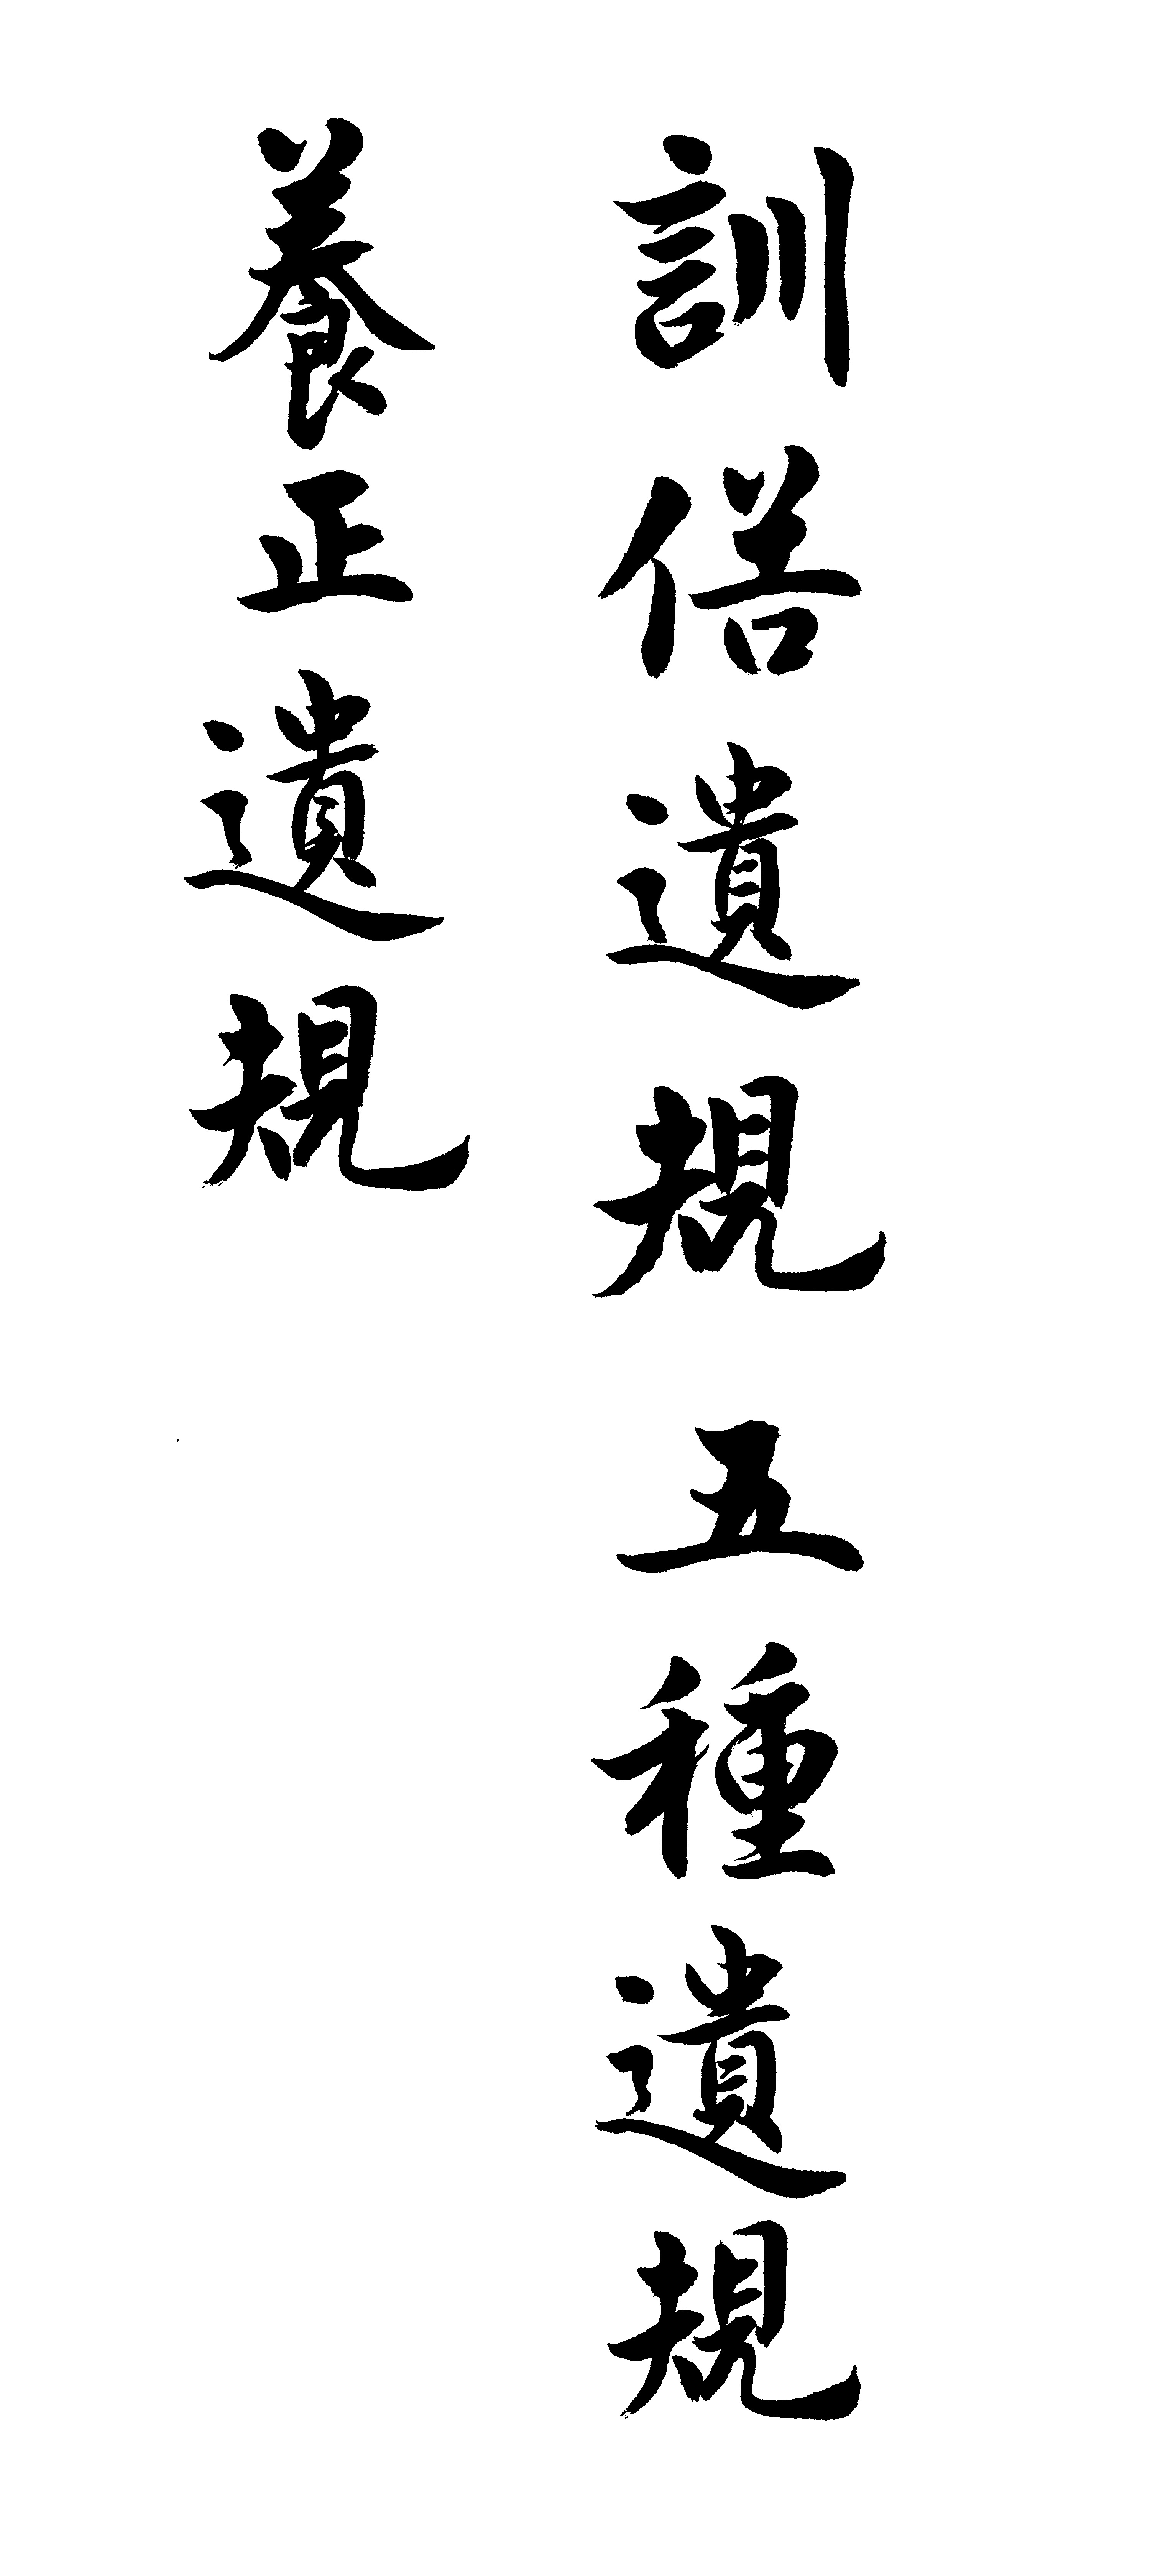 訓俗遺規 五種遺規
養正遺規